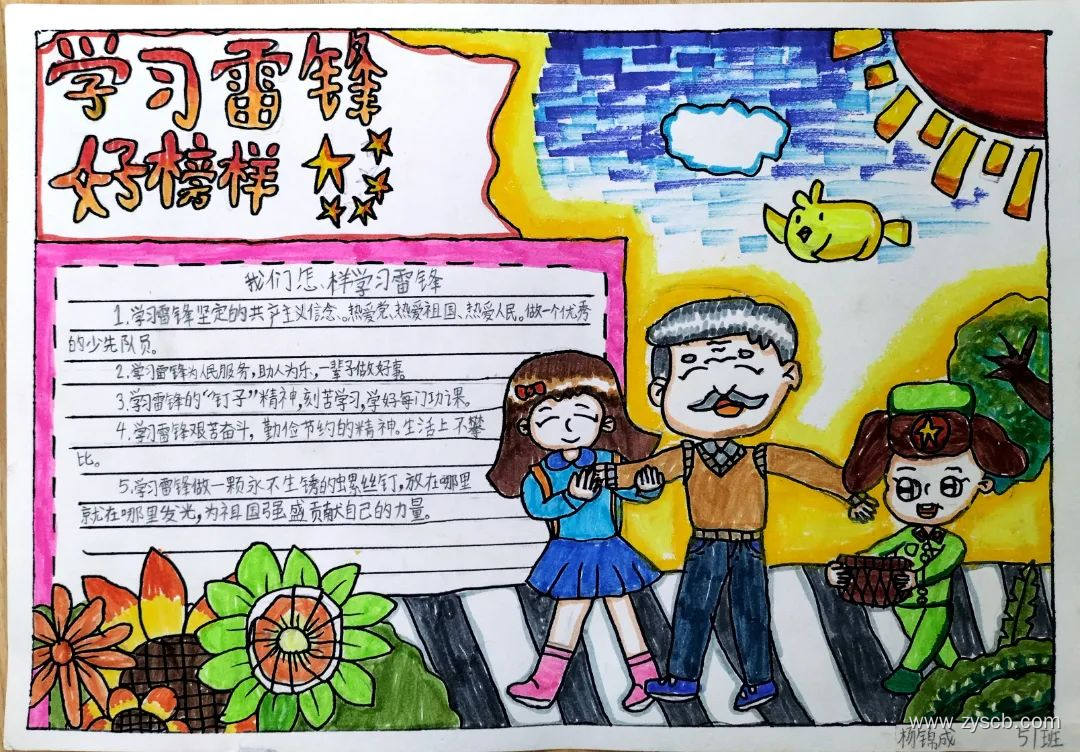 学习雷锋
好榜样
我们怎样学习雷锋
1.学习雷锋坚定的共产主义信念、热爱党、热爱祖国、热爱人民。做一个优秀
的少先队员。
2.学习雷锋为人民服务,助人为乐,一辈子做好事
3.学习雷锋的“钉子”精神,刻苦学习,学好每门功课。
4.学习雷锋艰苦奋斗,勤俭节约的精神。生活上不攀
比。
5.学习雷锋做一颗永不生锈的螺丝钉,放在哪里
就在哪里发光,为祖国强盛贡献自己的力量。
www.zyscb.com
杨锦成 51班